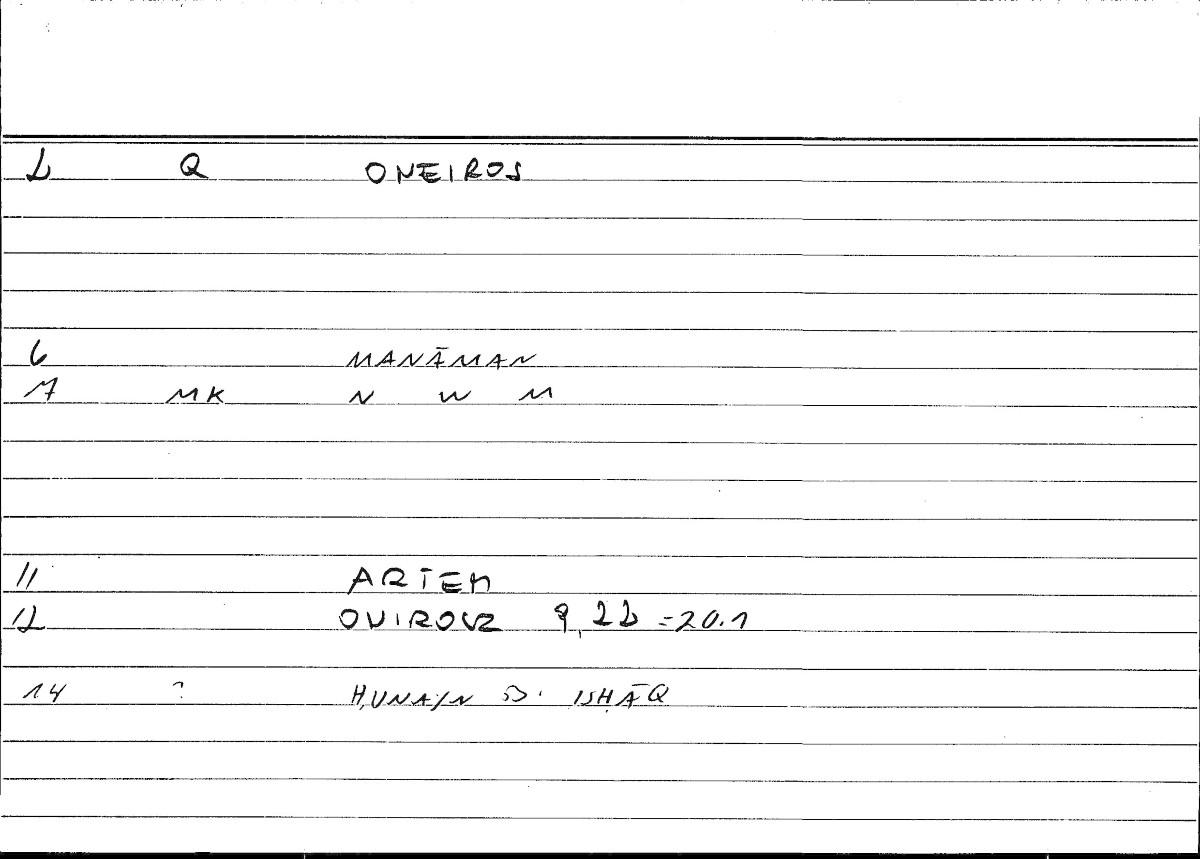 2 Q ONEIROS
6 MANĀMAN
7 MK N W M
11 ARTEM
12 OVIROCR 9,22 = 20.1
14 ? ḤUNAYN B. ISḤĀQ